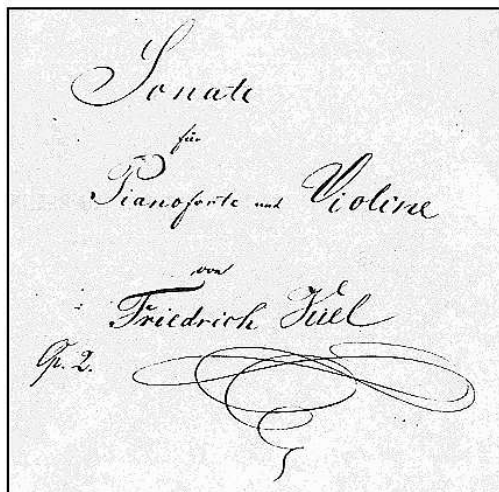 Sonate
für
Pianoforte und Violine
von
Friedrich Kiel
Op. 2.